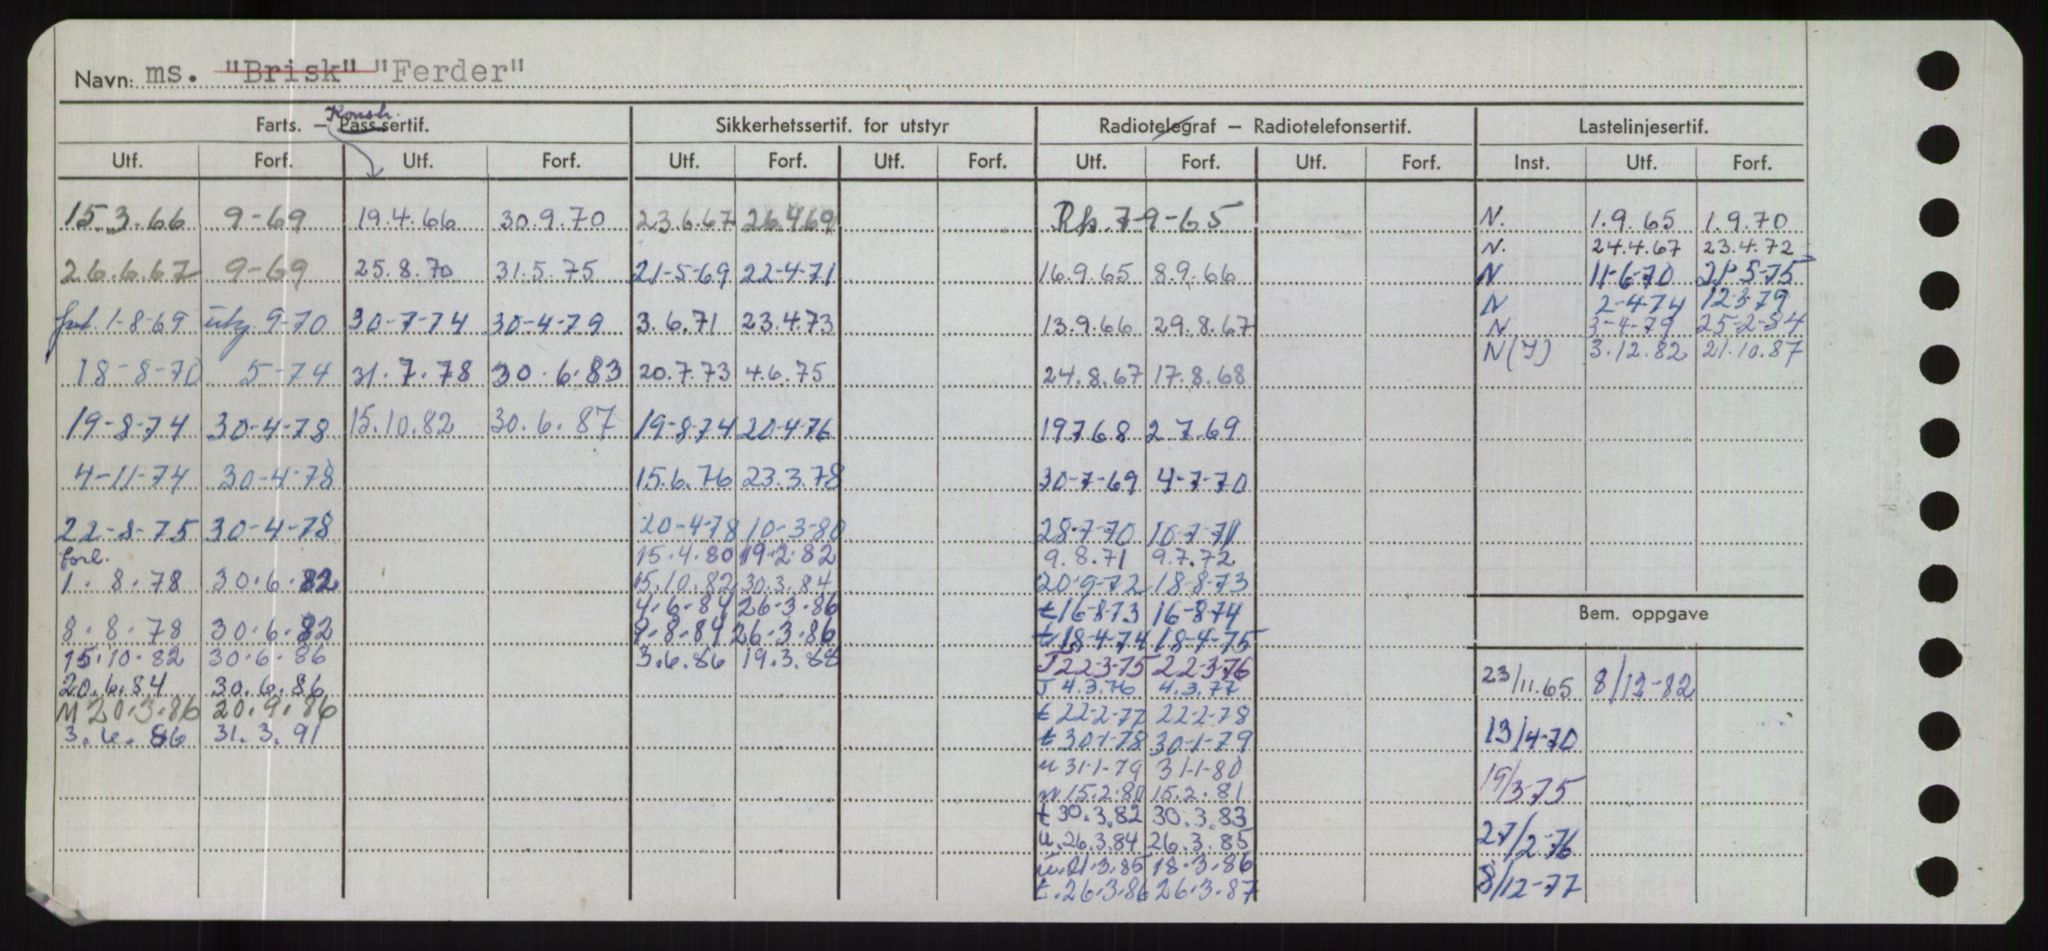 Navn: ms. "Brisk" "Ferder"
Konstr.
Farts. — Pass.sertif. Sikkerhetssertif. for utstyr Radiotelegraf — Radiotelefonsertif. Lastelinjesertif.
Utf. Forf. Utf. Forf. Utf. Forf. Utf. Forf. Utf. Forf. Utf. Forf. Inst. Utf. Forf.
15.3.66 9-69 19.4.66 30.9.70 23.6.67 26.4.69 Rh. 7-9-65 N. 1.9.65 1.9.70
N. 24.4.67 23.4.72
26.6.67 9-69 25.8.70 31.5.75 21-5-69 22-4-71 16.9.65 8.9.66 N 11-6-70 21-5-75
N 2-4-74 12-3-79
1-8-69 utg. 9-70 30-7-74 30-4-79 3.6.71 23.4.73 13.9.66 29.8.67 N 3-4-79 25-2-84
N(I) 3.12.82 21.10.87
18-8-70 5-74 31.7.78 30.6.83 20.7.73 4.6.75 24.8.67 17.8.68
19-8-74 30-4-78 15.10.82 30.6.87 19-8-74 20-4-76 19 7 68 2 7.69
4-11-74 30-4-78 15.6.76 23.3.78 30-7-69 4-7-70
22-8-75 30-4-78 20-4-78 10-3-80 28-7-70 10-7-71
forl. 15.4.80 19.2.82 9.8.71 9.7.72
1.8.78 30.6.82 15.10.82 30.3.84 20-9-72 18-8-73
4.6.84 26.3.86 t 16-8-73 16-8-74
Bem. oppgave
8.8.78 30.6.82 9.8.84 26.3.86 t 18-4-74 18-4-75
15.10.82 30.6.86 3.6.86 19.3.88 T 22-3-75 22-3-76
20.6.84 30.6.86 T 4.3.76 4.3.77 23/11.65 8/12-82
M 20.3.86 20.9.86 t 22-2-77 22-2-78
3.6.86 31.3.91 t 30-1-78 30-1-79 13/4-70
u 31-1-79 31-1-80
19/3 75
m 15.2.80 15.2.81
t 30.3.82 30.3.83
u. 26.3.84 26.3.85 27/2-76
21.3.85 18.3.86
t. 26.3.86 26.3.87 8/12-77